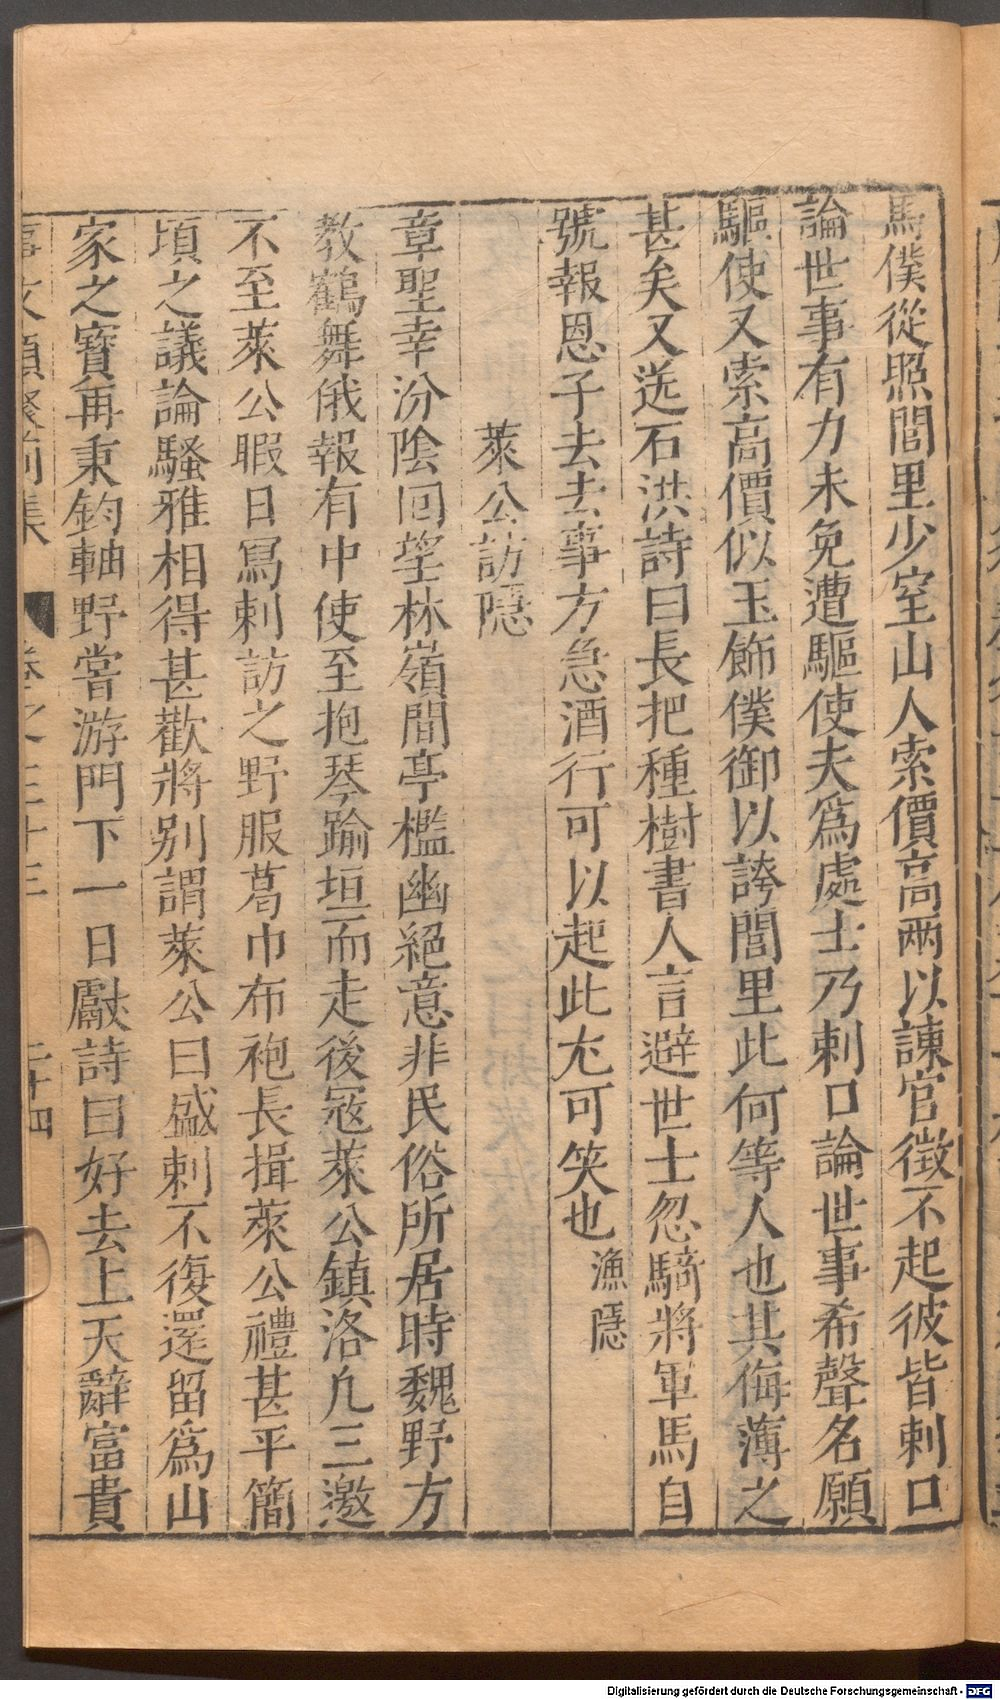 馬僕從照閭里少室山人索價高兩以諫官徵不起彼皆刺口
論世事有力未免遭驅使夫爲處士乃刺口論世事希聲名願
驅使又索高價似玉飾僕御以誇閭里此何等人也其侮薄之
甚矣又送石洪詩曰長把種樹書人言避世士忽騎將軍馬自
號報恩子去去事方急酒行可以起此尤可笑也漁隱
萊公訪隱
章聖幸汾陰回望林嶺間亭檻幽絕意非民俗所居時魏野方
教鶴舞俄報有中使至抱琴踰垣而走後寇萊公鎮洛凡三邀
不至萊公暇日寫刺訪之野服葛巾布袍長揖萊公禮甚平簡
頃之議論騷雅相得甚歡將別謂萊公曰盛刺不復還留爲山
家之寶再秉鈞軸野嘗游門下一日獻詩曰好去上天辭富貴
事文類聚前集 卷之三十三 二十四
Digitalisierung gefördert durch die Deutsche Forschungsgemeinschaft - DFG